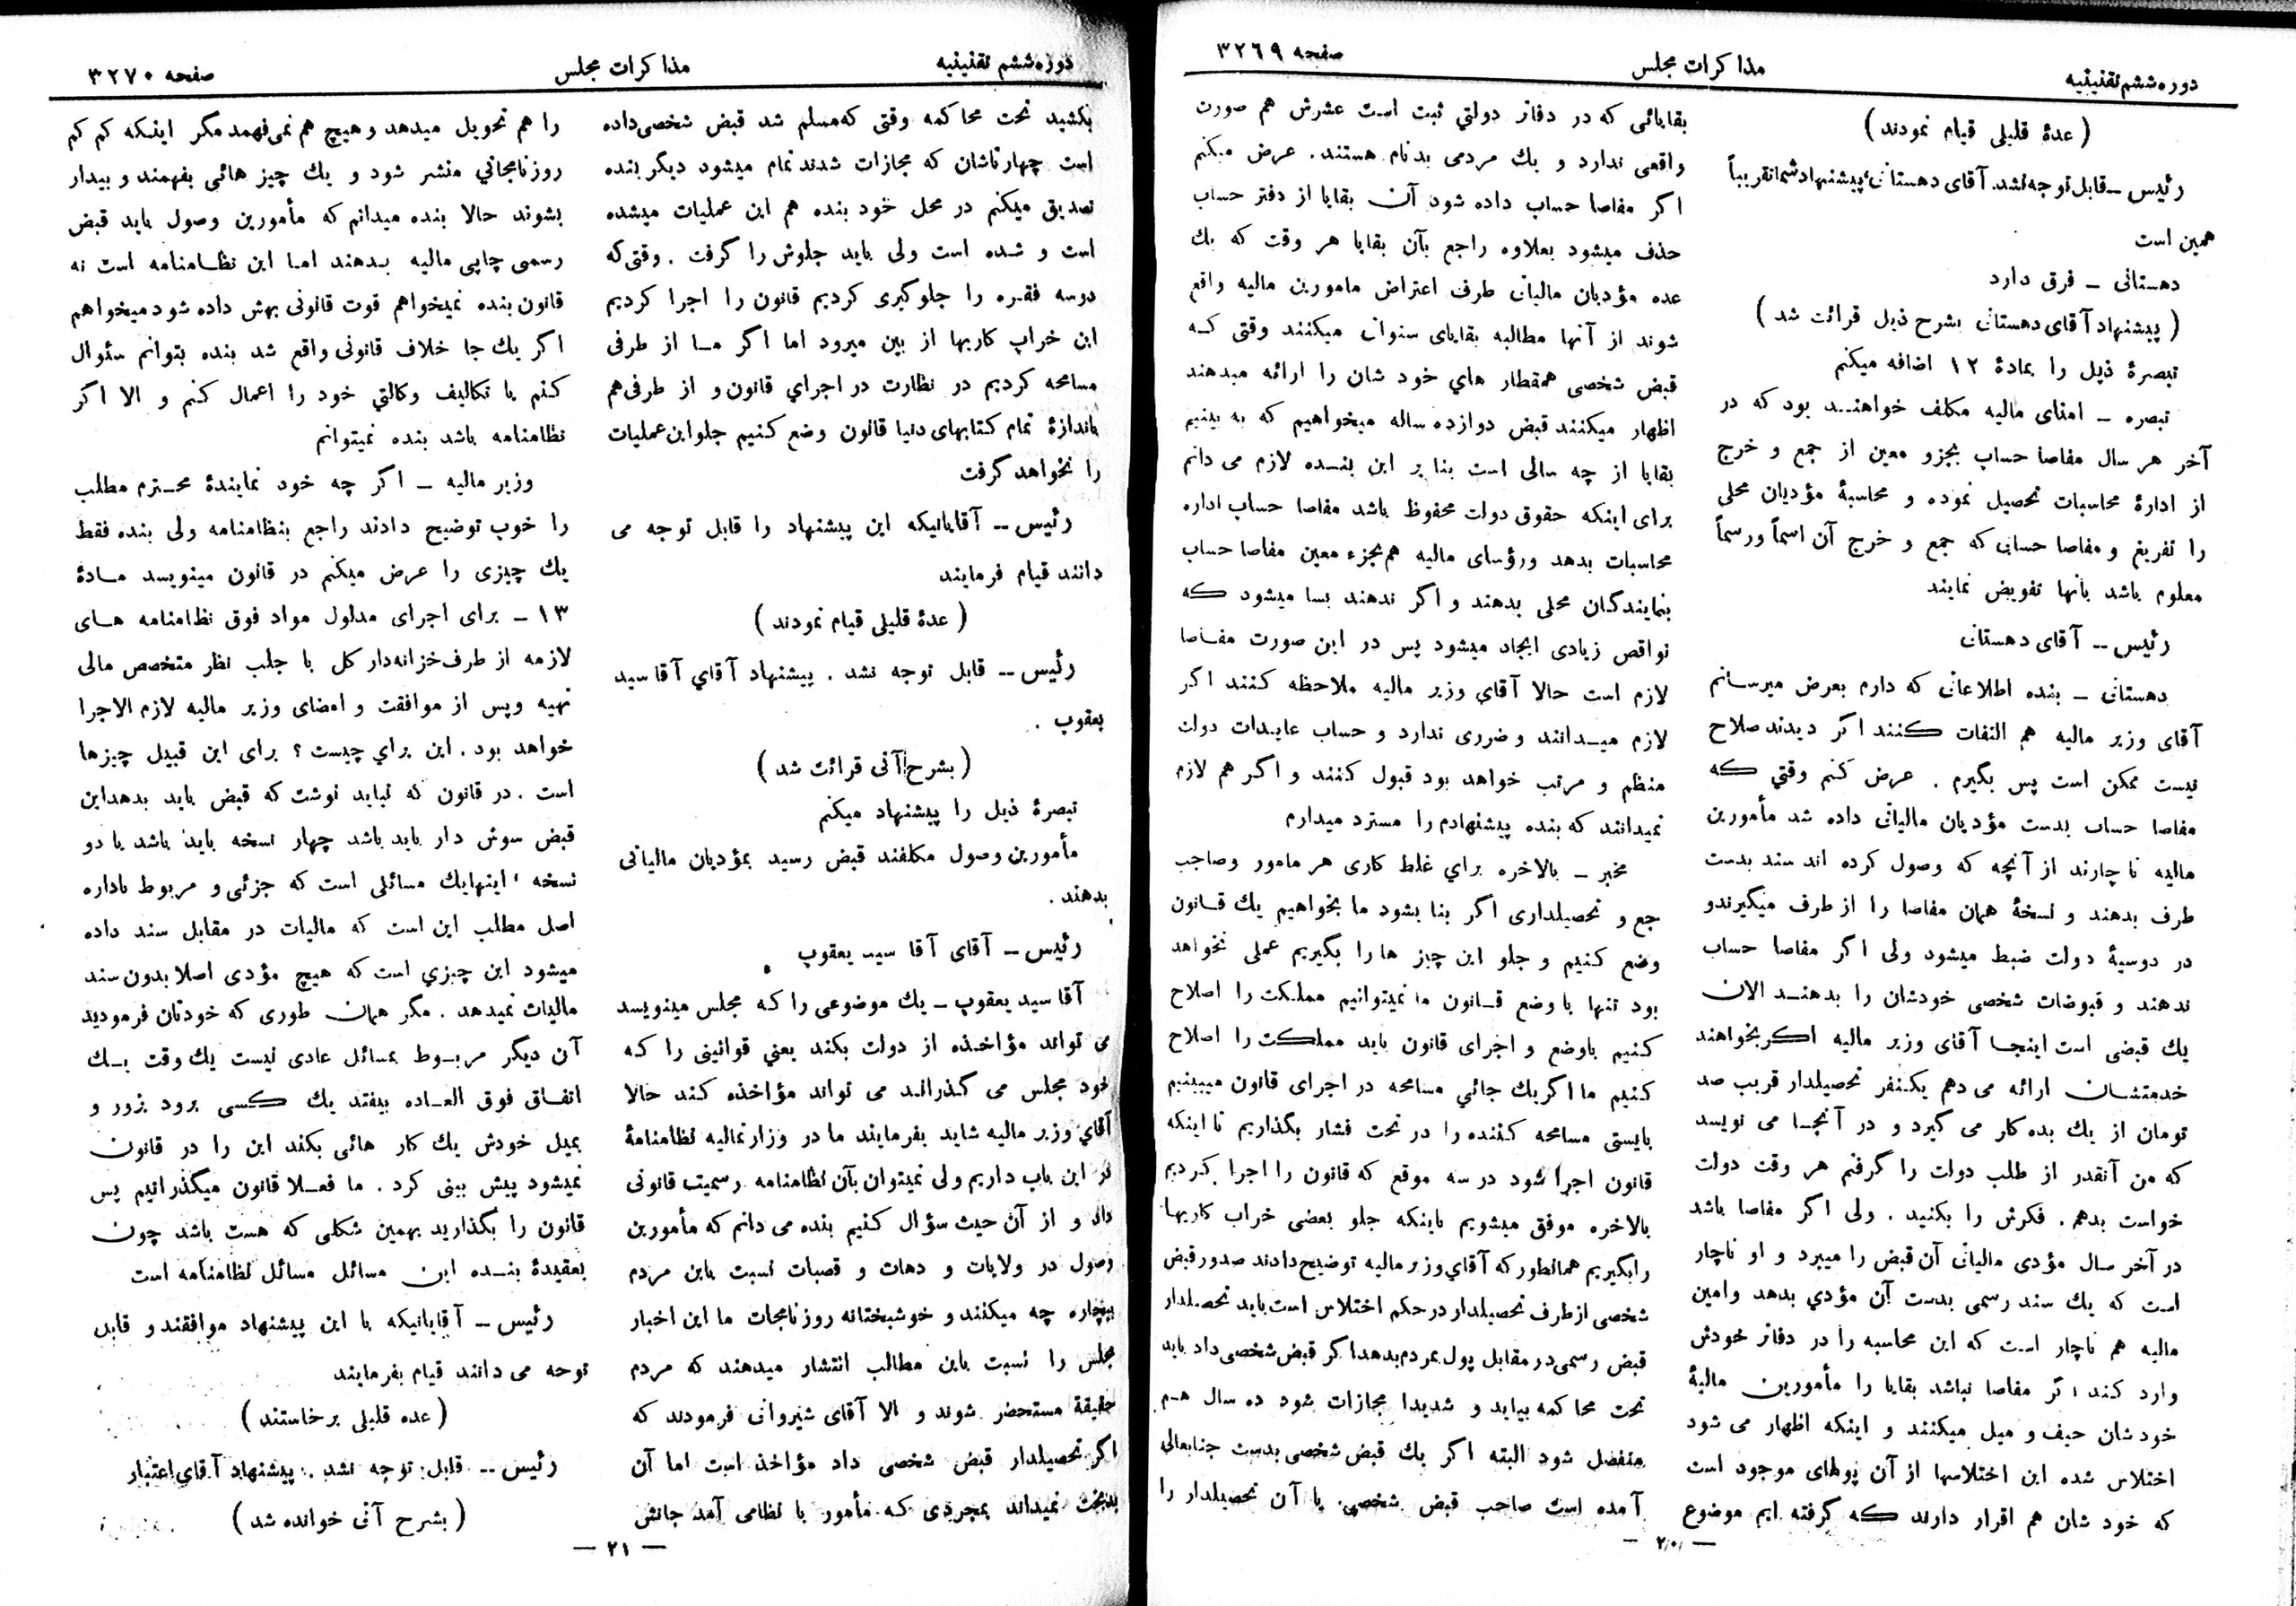 دوره ششم تقنینیه
مذاکرات مجلس
صفحه ۳۲۶۹
(عدهٔ قلیلی قیام نمودند)
رئیس ــ قابل توجه نشد. آقای دهستانی پیشنهاد شما تقریباً
همین است
دهستانی ــ فرق دارد
(پیشنهاد آقای دهستانی بشرح ذیل قرائت شد)
تبصرهٔ ذیل را بمادهٔ ۱۲ اضافه میکنم
تبصره ــ امنای مالیه مکلف خواهند بود که در
آخر هر سال مفاصا حساب بجزو معین از جمع و خرج
از ادارهٔ محاسبات تحصیل نموده و محاسبهٔ مؤدیان محلی
را تفریغ و مفاصا حسابی که جمع و خرج آن اسماً و رسماً
معلوم باشد بآنها تفویض نمایند
رئیس ــ آقای دهستانی
دهستانی ــ بنده اطلاعاتی که دارم بعرض میرسانم
آقای وزیر مالیه هم التفات کنند اگر دیدند صلاح
نیست ممکن است پس بگیرم . عرض کنم وقتی که
مفاصا حساب بدست مؤدیان مالیاتی داده شد مأمورین
مالیه ناچارند از آنچه که وصول کرده اند سند بدست
طرف بدهند و نسخهٔ همان مفاصا را از طرف میگیرندو
در دوسیهٔ دولت ضبط میشود ولی اگر مفاصا حساب
ندهند و قبوضات شخصی خودشان را بدهند الان
یك قبضی است اینجا آقای وزیر مالیه اگر بخواهند
خدمتشان ارائه می دهم یکنفر تحصیلدار قریب صد
تومان از یك بده کار می گیرد و در آنجا می نویسد
که من آنقدر از طلب دولت را گرفتم هر وقت دولت
خواست بدهم . فکرش را بکنید . ولی اگر مفاصا باشد
در آخر سال مؤدی مالیاتی آن قبض را میبرد و او ناچار
است که یك سند رسمی بدست آن مؤدي بدهد وامین
مالیه هم ناچار است که این محاسبه را در دفاتر خودش
وارد کند اگر مفاصا نباشد بقایا را مأمورین مالیهٔ
خودشان حیف و میل میکنند و اینکه اظهار می شود
اختلاس شده این اختلاسها از آن پولهای موجود است
که خود شان هم اقرار دارند که گرفته ایم موضوع
بقایائی که در دفاتر دولتي ثبت است عشرش هم صورت
واقعی ندارد و یك مردمی بدنام هستند . عرض میکنم
اگر مفاصا حساب داده شود آن بقایا از دفتر حساب
حذف میشود بعلاوه راجع بآن بقایا هر وقت که یك
عده مؤدیان مالیاتی طرف اعتراض مامورین مالیه واقع
شوند از آنها مطالبه بقایای سنواتی میکنند وقتی که
قبض شخصی همقطار هاي خود شان را ارائه میدهند
اظهار میکنند قبض دوازده ساله میخواهیم که به بینیم
بقایا از چه سالی است بنا بر این بنده لازم می دانم
برای اینکه حقوق دولت محفوظ باشد مفاصا حساب اداره
محاسبات بدهد ورؤسای مالیه هم بجزء معین مفاصا حساب
بنمایندگان محلی بدهند و اگر ندهند بسا میشود که
نواقص زیادی ایجاد میشود پس در این صورت مفاصا
لازم است حالا آقای وزیر مالیه ملاحظه کنند اگر
لازم میدانند و ضرری ندارد و حساب عایدات دولت
منظم و مرتب خواهد بود قبول کنند و اگر هم لازم
نمیدانند که بنده پیشنهادم را مسترد میدارم
مخبر ــ بالاخره براي غلط کاری هر مامور وصاحب
جمع و تحصیلداری اگر بنا بشود ما بخواهیم یك قانون
وضع کنیم و جلو این چیز ها را بگیریم عملی نخواهد
بود تنها با وضع قانون ما نمیتوانیم مملکت را اصلاح
کنیم باوضع و اجرای قانون باید مملکت را اصلاح
کنیم ما اگر یك جائي مسامحه در اجرای قانون میبینیم
بایستی مسامحه کننده را در تحت فشار بگذاریم تا اینکه
قانون اجرا شود در سه موقع که قانون را اجرا کردیم
بالاخره موفق میشویم باینکه جلو بعضی خراب کاریها
را بگیریم همانطور که آقاي وزیر مالیه توضیح دادند صدور قبض
شخصی از طرف تحصیلدار در حکم اختلاس است باید تحصیلدار
قبض رسمی در مقابل پول بمردم بدهد اگر قبض شخصی داد باید
تحت محاکمه بیاید و شدیدا مجازات شود ده سال هم
منفصل شود البته اگر یك قبض شخصی بدست جنابعالی
آمده است صاحب قبض شخصی یا آن تحصیلدار را
ــ ۲۰ ــ
دوره ششم تقنینیه
مذاکرات مجلس
صفحه ۳۲۷۰
بکشید تحت محاکمه وقتی که مسلم شد قبض شخصی داده
است چهارتاشان که مجازات شدند تمام میشود دیگر بنده
تصدیق میکنم در محل خود بنده هم این عملیات میشده
است و شده است ولی باید جلوش را گرفت . وقتی که
دوسه فقره را جلوگیری کردیم قانون را اجرا کردیم
این خراب کاریها از بین میرود اما اگر ما از طرفی
مسامحه کردیم در نظارت در اجراي قانون و از طرفی هم
باندازهٔ تمام کتابهای دنیا قانون وضع کنیم جلو این عملیات
را نخواهد گرفت
رئیس ــ آقایانیکه این پیشنهاد را قابل توجه می
دانند قیام فرمایند
(عدهٔ قلیلی قیام نمودند)
رئیس ــ قابل توجه نشد . پیشنهاد آقاي آقا سید
یعقوب .
(بشرح آتی قرائت شد)
تبصرهٔ ذیل را پیشنهاد میکنم
مأمورین وصول مکلفند قبض رسید بمؤدیان مالیاتی
بدهند .
رئیس ــ آقای آقا سید یعقوب
آقا سید یعقوب ــ یك موضوعی را که مجلس مینویسد
می تواند مؤاخذه از دولت بکند یعني قوانینی را که
خود مجلس می گذراند می تواند مؤاخذه کند حالا
آقاي وزیر مالیه شاید بفرمایند ما در وزارتمالیه نظامنامهٔ
در این باب داریم ولی نمیتوان بآن نظامنامه رسمیت قانونی
داد و از آن حیث سؤال کنیم بنده می دانم که مأمورین
وصول در ولایات و دهات و قصبات نسبت باین مردم
بیچاره چه میکنند و خوشبختانه روزنامجات ما این اخبار
مجلس را نسبت باین مطالب انتشار میدهند که مردم
حقیقة مستحضر شوند و الا آقای شیروانی فرمودند که
اگر تحصیلدار قبض شخصی داد مؤاخذ است اما آن
بدبخت نمیداند بمجردی که مأمور با نظامی آمد جانش
را هم تحویل میدهد و هیچ هم نمی فهمد مگر اینکه کم کم
روزنامجاتي منتشر شود و یك چیز هائی بفهمند و بیدار
بشوند حالا بنده میدانم که مأمورین وصول باید قبض
رسمی چاپی مالیه بدهند اما این نظامنامه است نه
قانون بنده نمیخواهم قوت قانونی بهش داده شود میخواهم
اگر یك جا خلاف قانونی واقع شد بنده بتوانم سئوال
کنم یا تکالیف وکالتي خود را اعمال کنم و الا اگر
نظامنامه باشد بنده نمیتوانم
وزیر مالیه ــ اگر چه خود نمایندهٔ محترم مطلب
را خوب توضیح دادند راجع بنظامنامه ولی بنده فقط
یك چیزی را عرض میکنم در قانون مینویسد مادهٔ
۱۳ ــ برای اجرای مدلول مواد فوق نظامنامه های
لازمه از طرف خزانه دار کل با جلب نظر متخصص مالی
تهیه وپس از موافقت و امضای وزیر مالیه لازم الاجرا
خواهد بود . این براي چیست ؟ برای این قبیل چیزها
است . در قانون که نباید نوشت که قبض باید بدهد این
قبض سوش دار باید باشد چهار نسخه باید باشد یا دو
نسخه ، اینهایك مسائلی است که جزئی و مربوط باداره
اصل مطلب این است که مالیات در مقابل سند داده
میشود این چیزي است که هیچ مؤدی اصلا بدون سند
مالیات نمیدهد . مگر همان طوری که خودتان فرمودید
آن دیگر مربوط بمسائل عادی نیست یك وقت یك
اتفاق فوق العاده بیفتد یك کسی برود بزور و
بمیل خودش یك کار هائی بکند این را در قانون
نمیشود پیش بینی کرد . ما فعلا قانون میگذرانیم پس
قانون را بگذارید بهمین شکلی که هست باشد چون
بعقیدهٔ بنده این مسائل مسائل نظامنامه است
رئیس ــ آقایانیکه با این پیشنهاد موافقند و قابل
توجه می دانند قیام بفرمایند
(عده قلیلی برخاستند)
رئیس ــ قابل توجه نشد . پیشنهاد آقاي اعتبار
(بشرح آتی خوانده شد)
ــ ۲۱ ــ